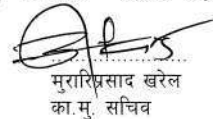 मुरारिप्रसाद खरेल
का.मु. सचिव